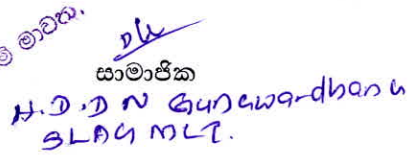 මාවත.
සාමාජික
H.D.D N Gunawardhana
SLAG MLT.